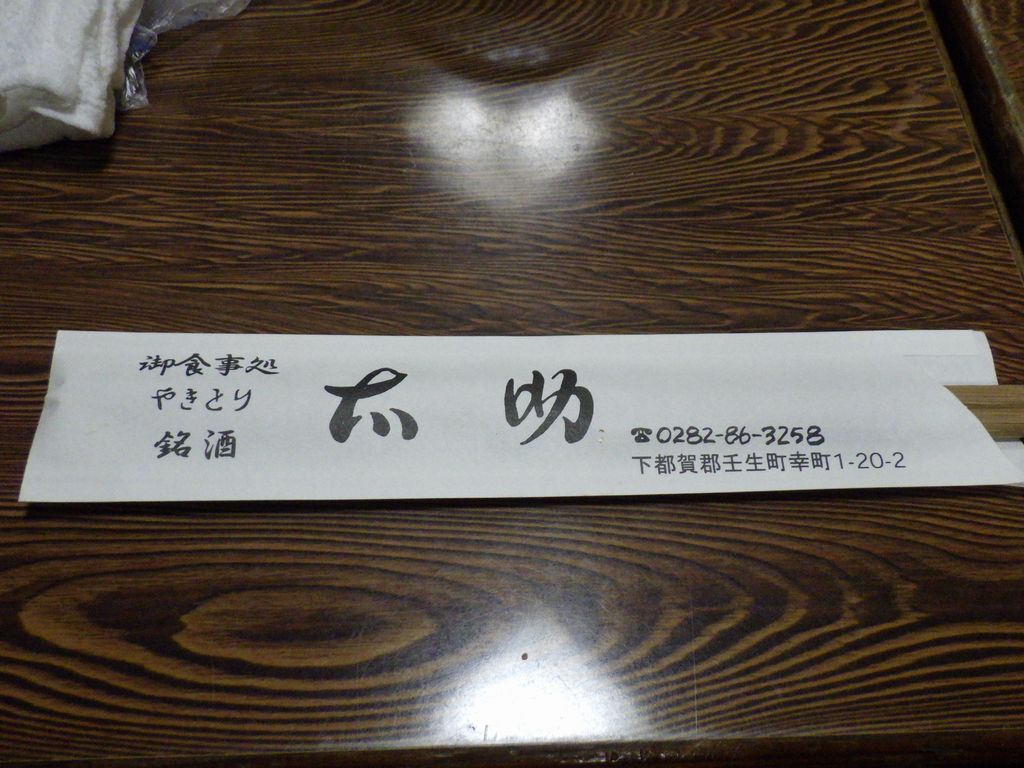 御食事処
やきとり
銘酒
☎0282-86-3258
下都賀郡壬生町幸町1-20-2